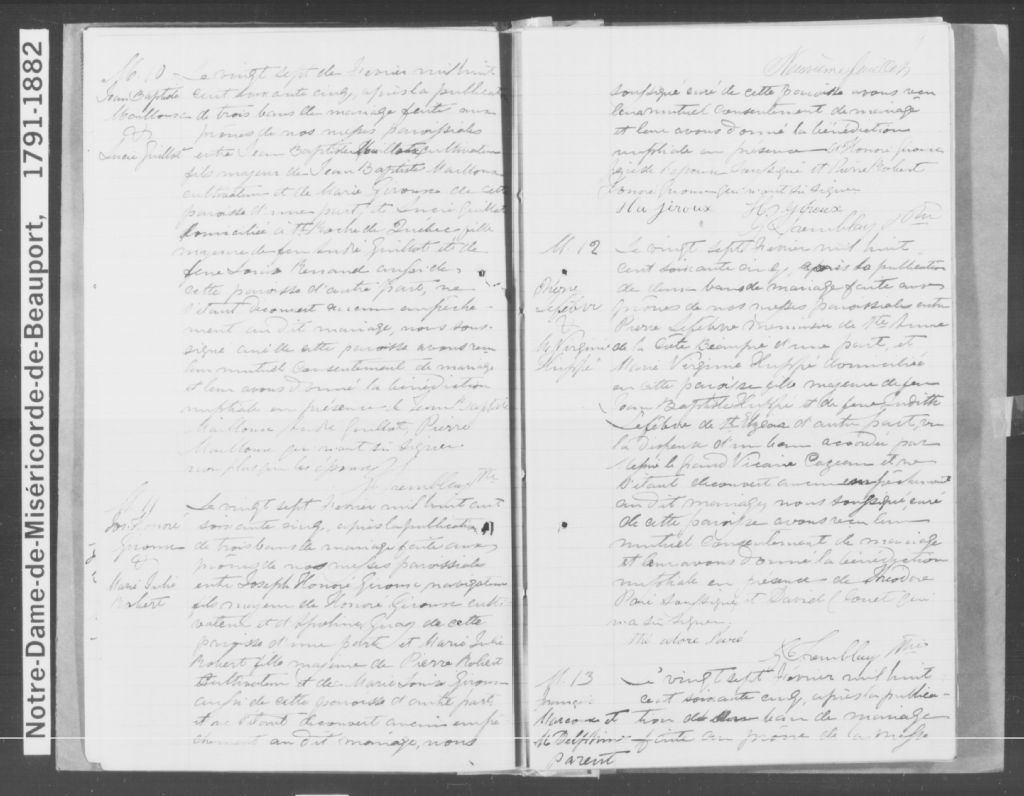 Notre-Dame-de-Miséricorde-de-Beauport, 1791-1882
M. 10
Jean Baptiste
Mailloux
&
Lucie Guillot
Le vingt sept de Fevrier mil huit
cent soixante cinq, après la publicat
de trois bans de mariage faite aux
prones de nos messes paroissiales
entre Jean Baptiste Mailloux cultivateur
fils majeur de Jean Baptiste Mailloux
cultivateur et de Marie Giroux de cette
paroisse d'une part, et Lucie Guillot
domiciliée à St Roche de Québec, fille
majeure de feu André Guillot et de
feue Louise Renaud aussi de
cette paroisse d'autre part, ne
s'étant decouvert aucun empêche-
ment au dit mariage, nous sous-
signé curé de cette paroisse avons reçu
leur mutuel consentement de mariage
et leur avons donné la bénédiction
nuptiale en présence de Jean Baptiste
Mailloux, André Guillot, Pierre
Mailloux qui n'ont su signer
non plus que les époux
G. Tremblay Ptre
Jos. Honoré
Giroux
&
Marie Julie
Robert
Le vingt sept Fevrier mil huit cent
soixante cinq, après la publication
de trois bans de mariage faite aux
prones de nos messes paroissiales
entre Joseph Honoré Giroux navigateur
fils majeur de Honoré Giroux culti-
vateur et d'Apolline Guay de cette
paroisse d'une part et Marie Julie
Robert fille majeure de Pierre Robert
cultivateur et de Marie Louise Giroux
aussi de cette paroisse d'autre part
et ne s'étant decouvert aucun empê-
chement au dit mariage, nous
Neuvième feuillet
soussigné curé de cette paroisse avons reçu
leur mutuel consentement de mariage
et leur avons donné la bénédiction
nuptiale en présence d'Honoré Giroux
père de l'époux soussigné et Pierre Robert
Honoré Giroux qui n'ont su signer
H. Giroux
G. Tremblay Ptre
M. 12
Pierre
Lefebvre
&
M. Virginie
Huppé
Le vingt sept Fevrier mil huit
cent soixante cinq, après la publication
de deux bans de mariage faite aux
prônes de nos messes paroissiales entre
Pierre Lefebvre menuisier de Ste Anne
de la Côte Beaupré d'une part, et
Marie Virginie Huppé domiciliée
en cette paroisse fille majeure de feu
Jean Baptiste Huppé et de feue Judith
Lefebvre de d'autre part, vu
la Dispense d'un ban accordée par
le grand Vicaire Cazeau et ne
s'étant decouvert aucun empêchement
au dit mariage, nous soussigné, curé
de cette paroisse avons reçu leur
mutuel consentement de mariage
et leur avons donné la bénédiction
nuptiale en présence de Théodore
Paré soussigné et David Clouet qui
n'a su signer
Théodore Paré
G. Tremblay Ptre
M. 13
François
Marcoux et
M. Delphine
Parent
Le vingt sept Fevrier mil huit
cent soixante cinq, après la publica-
tion de ban de mariage
faite au prone de la messe